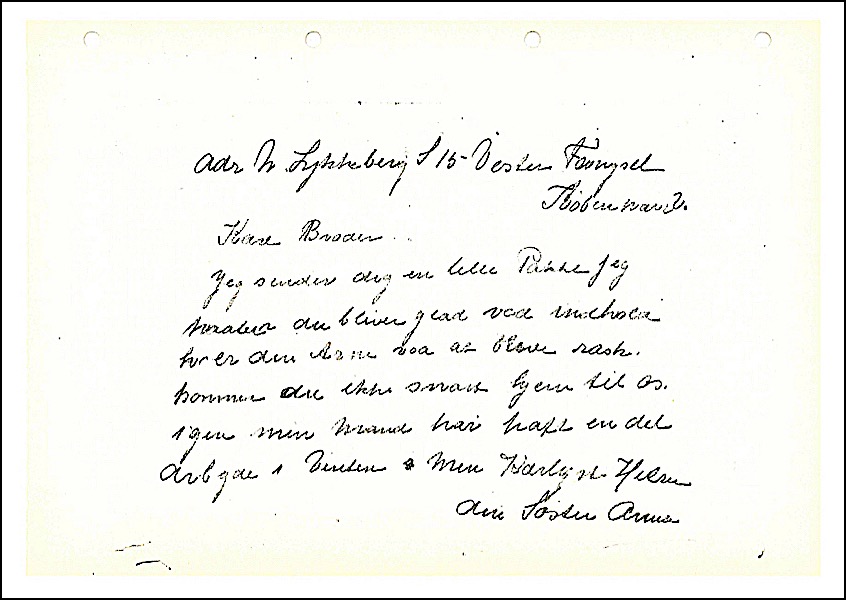 Adr N. Lykkeberg S 15 Vester Fængsel
København V.
Kære Broder
Jeg sender dig en lille Pakke Jeg
haaber du bliver glad ved indhold
hv er din Arm ved at blive rask.
kommer du ikke snart hjem til os.
igen min Mand har haft en del
Arbejde i Vinter Men Kærligst Hilsen
din Søster Anna